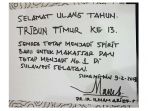 SELAMAT ULANG TAHUN
TRIBUN TIMUR KE 13.
SEMOGA TETAP MENJADI SPIRIT
BARU UNTUK MAKASSAR DAN
TETAP MENJADI No. 1 DI
SULAWESI SELATAN.
9-2-201
DR. IR. ILHAM ARIEF